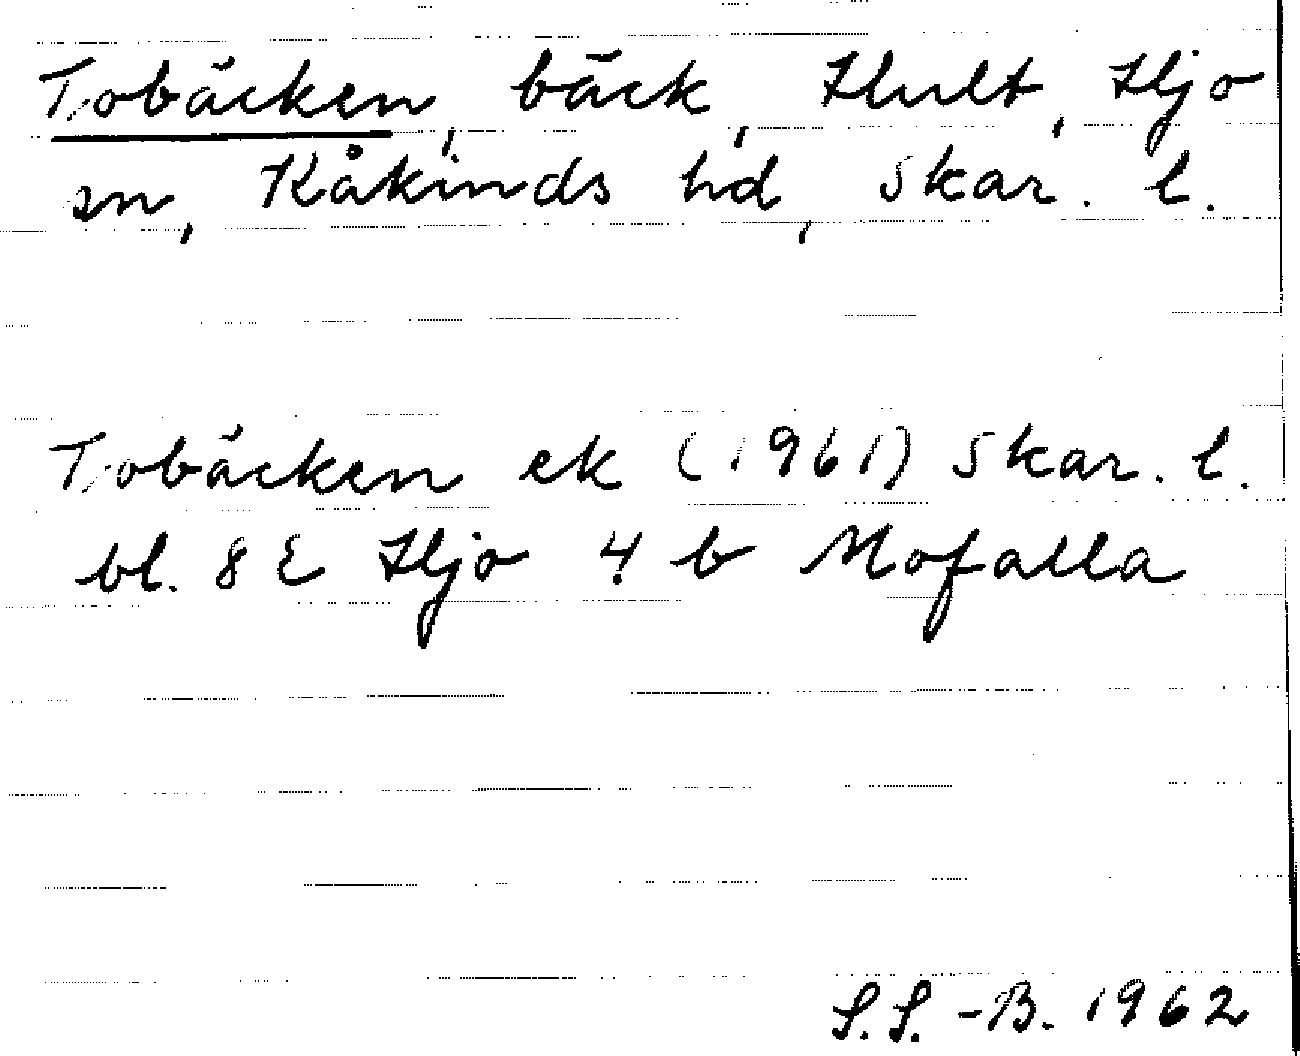 Tobäcken, bäck, Hult, Hjo
sn, Kåkinds hd, Skar. l.
Tobäcken ek (1961) Skar. l.
bl. 8 E Hjo 4 b Mofalla
S.S.-B. 1962